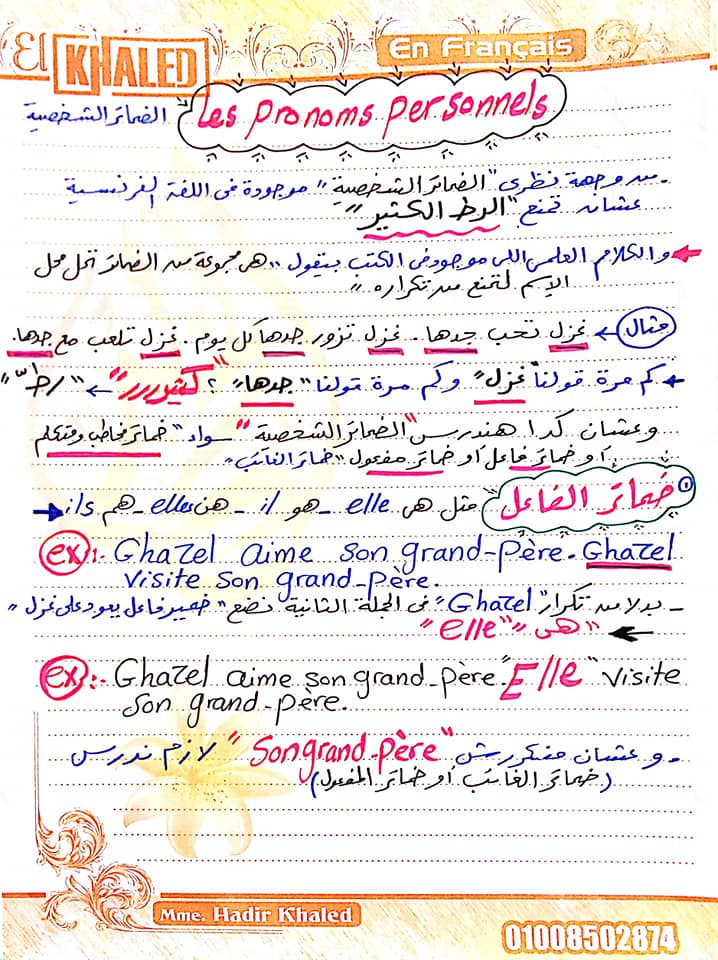 El KHALED
En Français
Les pronoms personnels
الضمائر الشخصية
- من وجهة نظرى "الضمائر الشخصية" موجودة فى اللغة الفرنسية
عشان تمنع "الرط الكتير"
والكلام العلمى اللى موجود فى الكتب بيقول "هى مجموعة من الضمائر تحل محل
الإسم لتمنع من تكراره"
مثال ← غزل تحب جدها. غزل تزور جدها كل يوم. غزل تلعب مع جدها.
كم مرة قولنا "غزل" وكم مرة قولنا "جدها" ؟ "كتيوررر" ← "رط"
وعشان كدا هندرس "الضمائر الشخصية" سواء "ضمائر مخاطب ومتكلم
أو ضمائر فاعل أو ضمائر مفعول "ضمائر الغائب"
① ضمائر الفاعل" مثل هى elle - هو il - هن elles - هم ils
ex:- Ghazel aime son grand-père. Ghazel
visite son grand-père.
- بدلا من تكرار "Ghazel" فى الجملة الثانية نضع "ضمير فاعل يعود على غزل"
"هى" "elle"
ex:- Ghazel aime son grand-père. "Elle" visite
son grand-père.
- وعشان منكررش "Son grand-père" لازم ندرس
(ضمائر الغائب أو ضمائر المفعول)
Mme. Hadir Khaled
01008502874